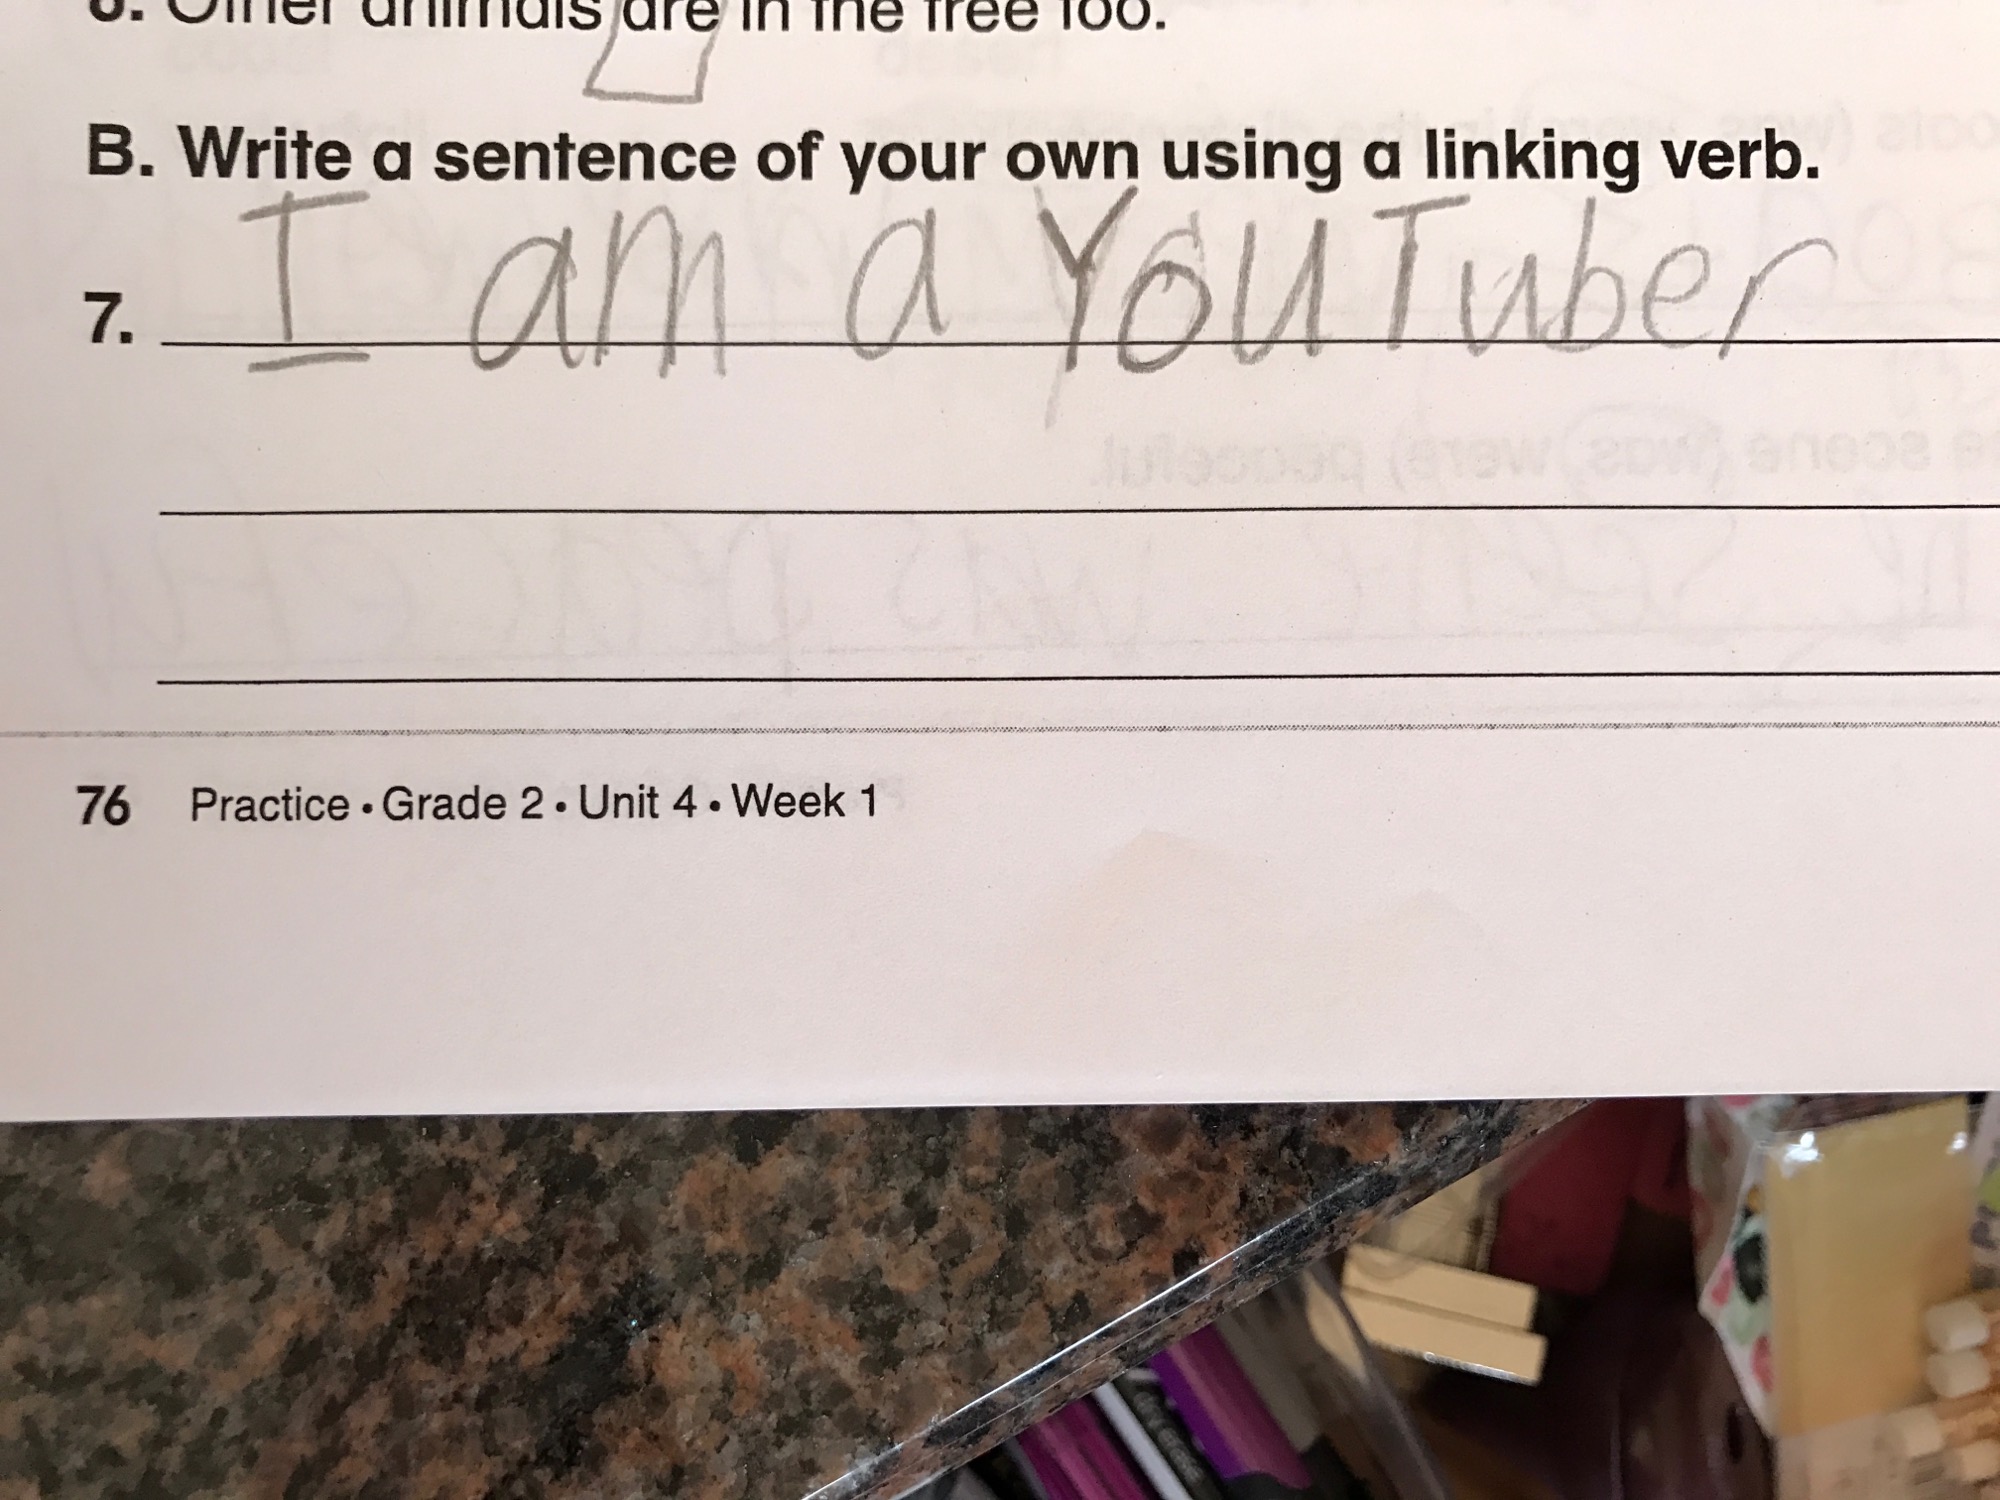 6. Other animals are in the tree too.
B. Write a sentence of your own using a linking verb.
7. I am a YouTuber
76 Practice • Grade 2 • Unit 4 • Week 1